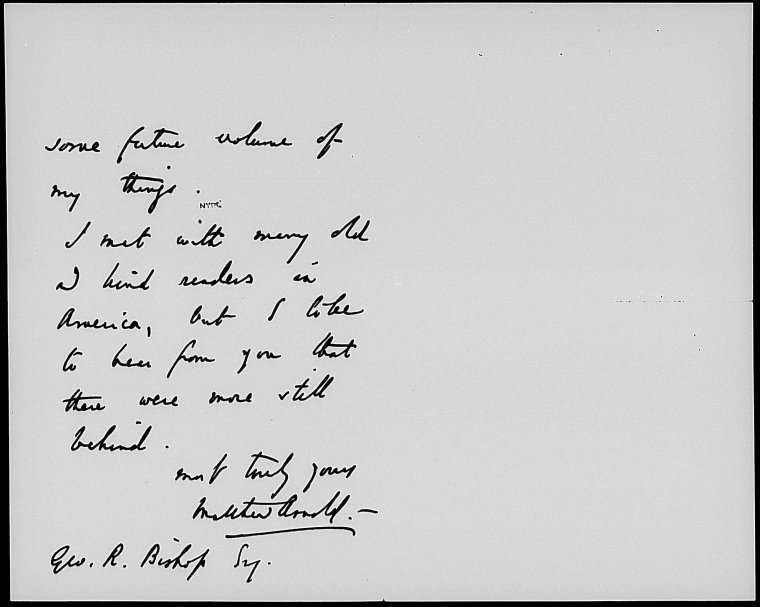 some future volume of
my things.
NYPL
I met with many old
and kind readers in
America, but I like
to hear from you that
there were more still
behind.
most truly yours
Matthew Arnold.—
Geo. R. Bishop Esq.